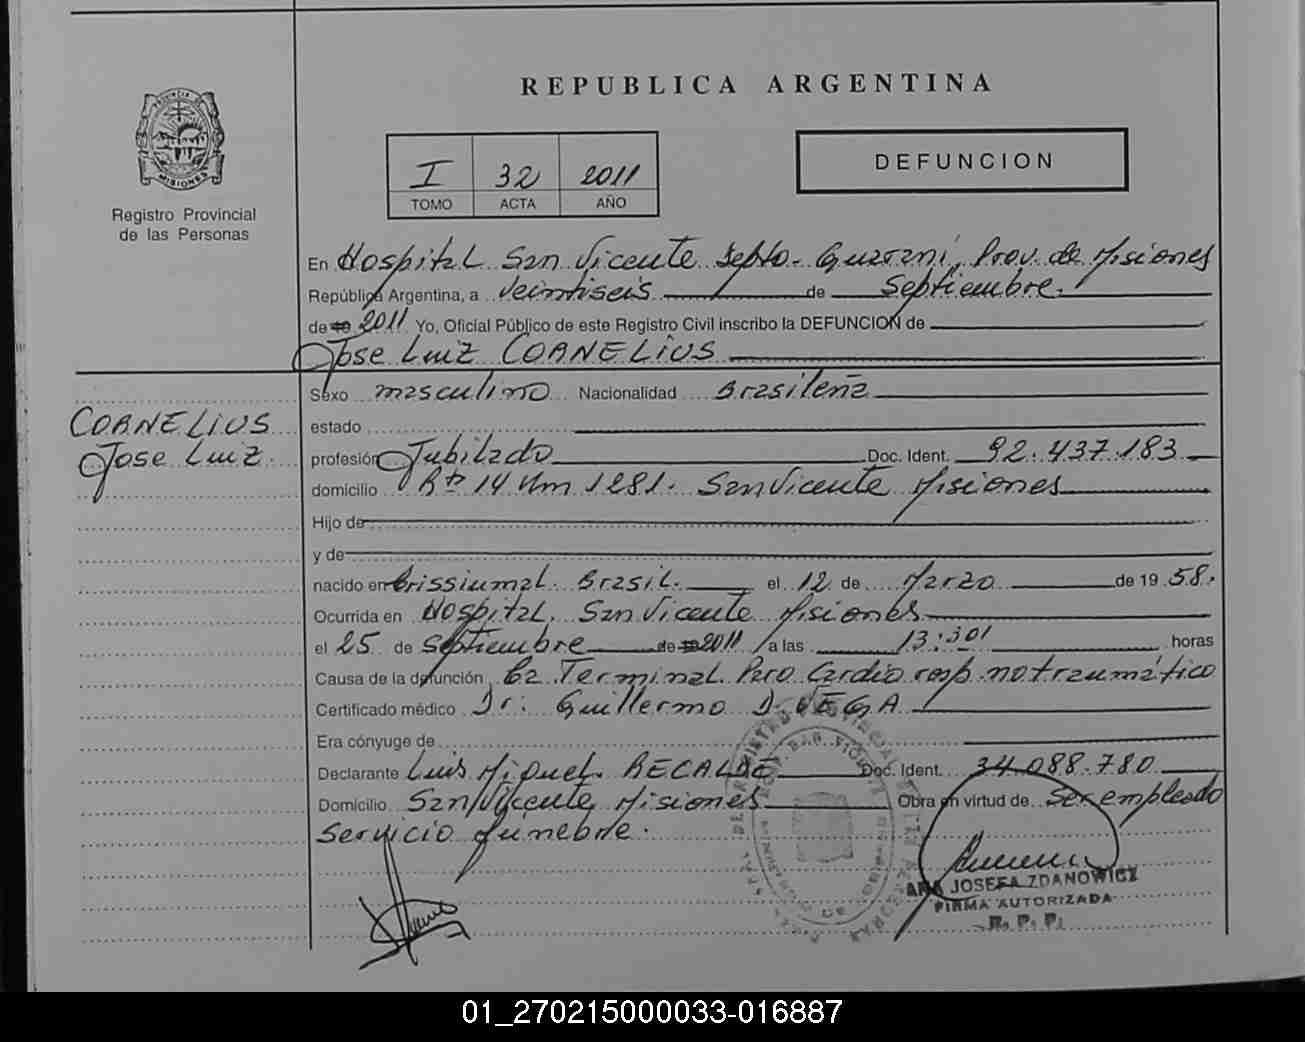 REPUBLICA ARGENTINA
PROVINCIA DE
MISIONES
Registro Provincial
de las Personas
I 32 2011
TOMO ACTA AÑO
DEFUNCION
En Hospital San Vicente Depto. Guarani, Prov. de Misiones
República Argentina, a veintiseis de Septiembre.
de 19 2011 Yo, Oficial Público de este Registro Civil inscribo la DEFUNCION de
Jose Luiz CORNELIUS
CORNELIUS
Jose Luiz.
Sexo masculino Nacionalidad Brasileña
estado
profesión Jubilado Doc. Ident. 92.437.183
domicilio Rta 14 Km 1281. San Vicente Misiones
Hijo de
y de
nacido en Crissiumal. Brasil. el 12 de Marzo de 19 58.
Ocurrida en Hospital. San Vicente Misiones
el 25 de Septiembre de 19 2011 a las 13:30' horas
Causa de la defunción Ca Terminal. Paro Cardio resp. no traumático
Certificado médico Dr: Guillermo D. VEGA
Era cónyuge de
Declarante Luis Miguel. RECALDE Doc. Ident. 34.088.780
Domicilio San Vicente, Misiones Obra en virtud de Ser empleado
Servicio funebre.
ANA JOSEFA ZDANOWICZ
FIRMA AUTORIZADA
R. P. P.
01_270215000033-016887